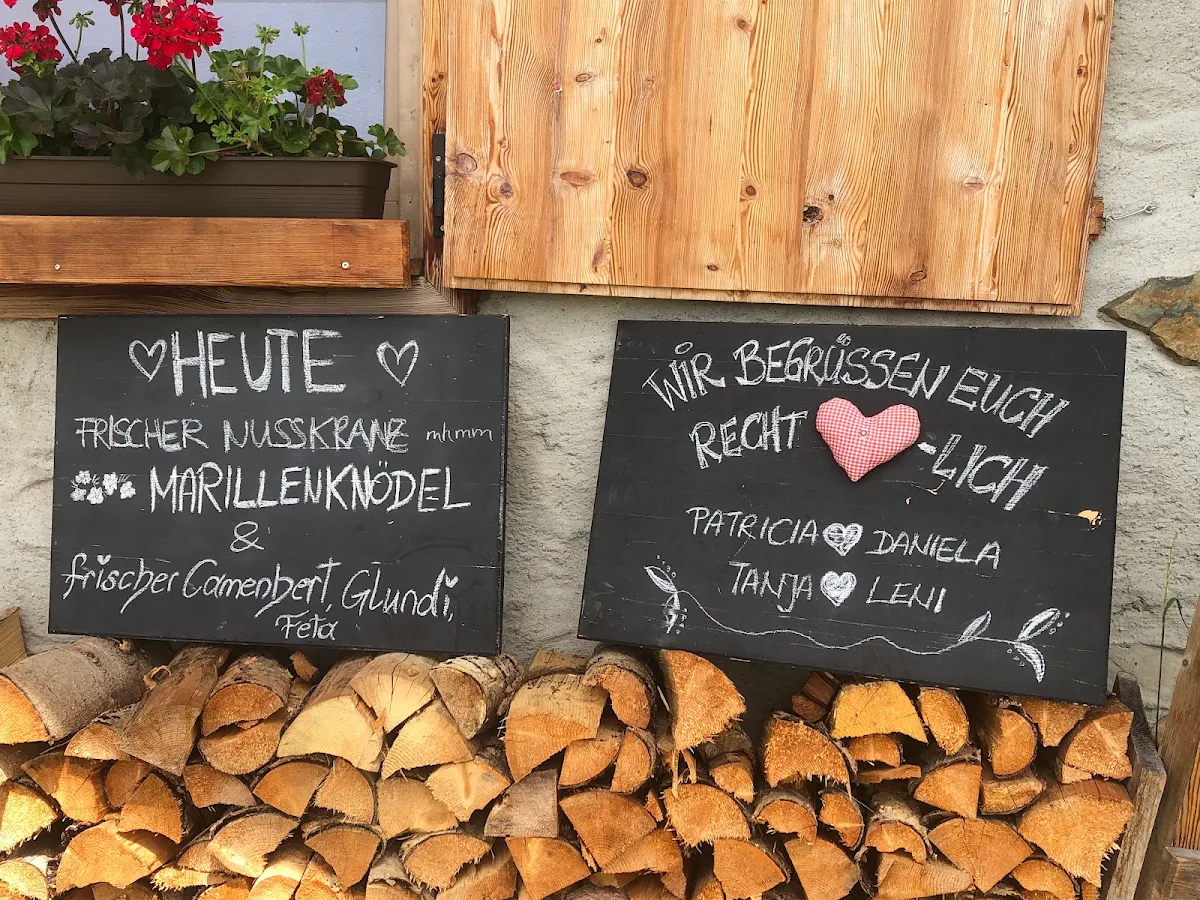 HEUTE
FRISCHER NUSSKRANZ mhmm
MARILLENKNÖDEL
&
frischer Camenbert, Glundi,
Feta
WIR BEGRÜSSEN EUCH
RECHT -LICH
PATRICIA DANIELA
TANJA LENI